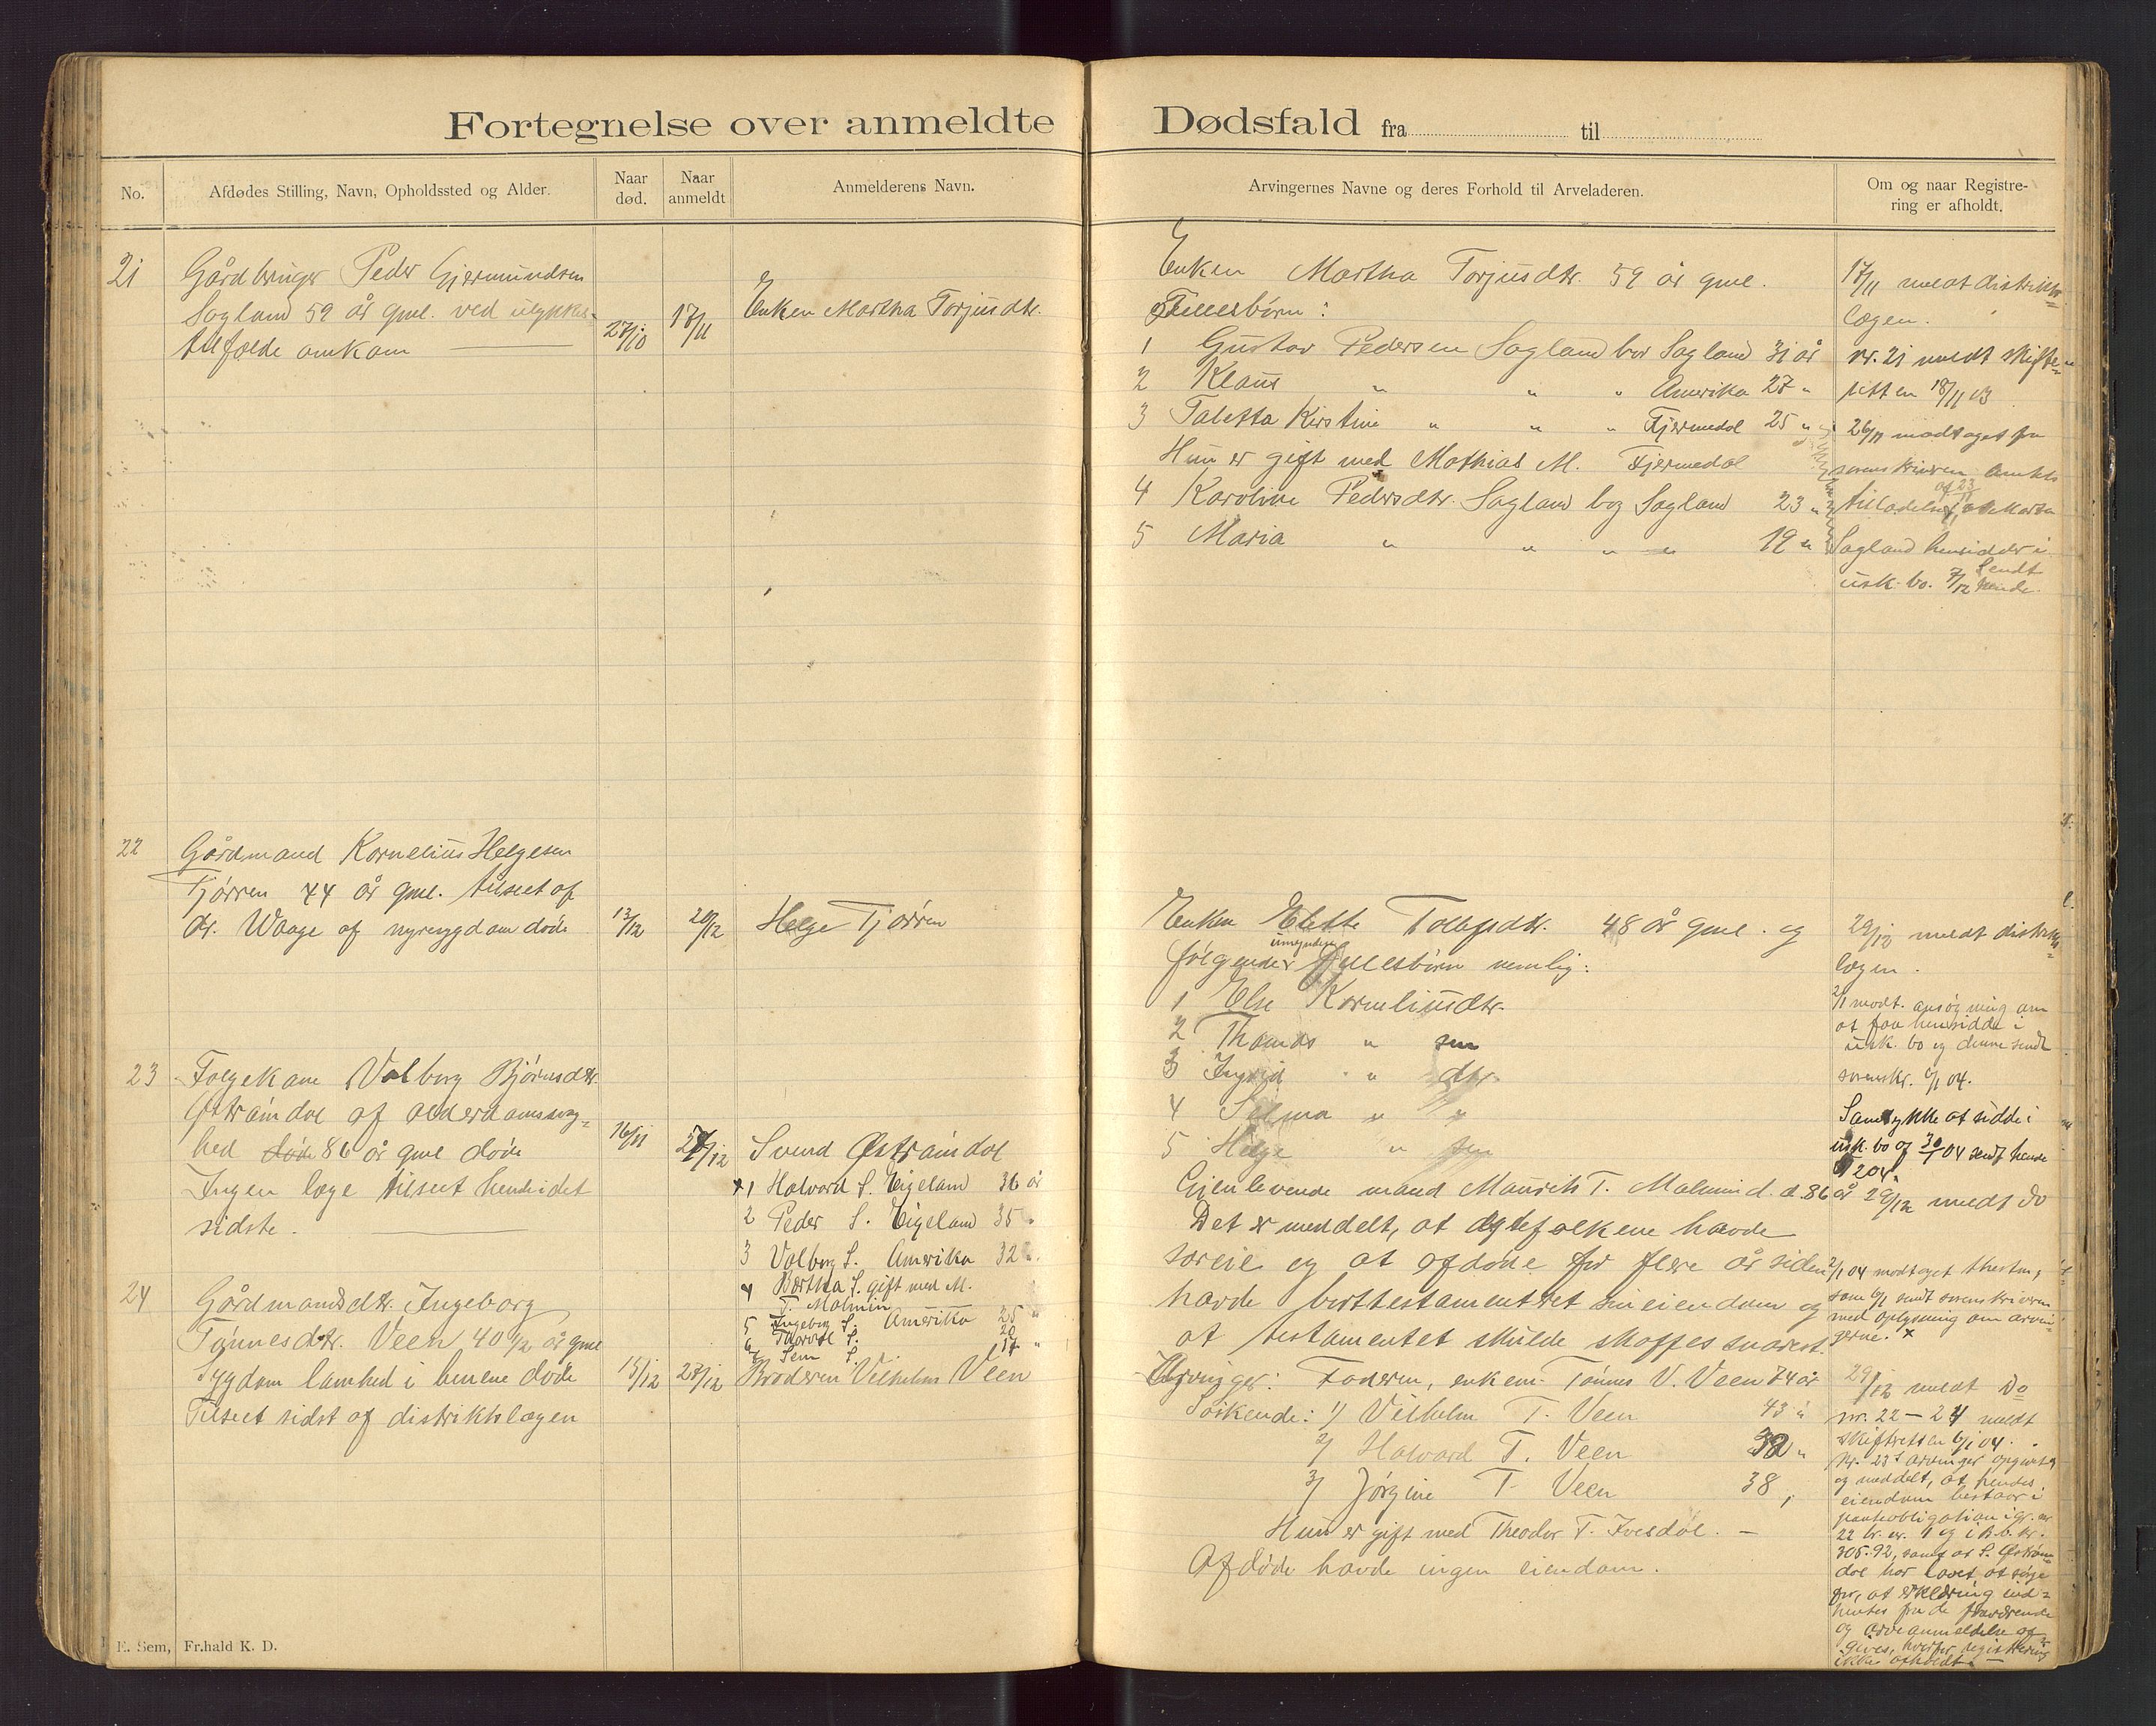 Fortegnelse over anmeldte Dødsfald fra til
No.
Afdødes Stilling, Navn, Opholdssted og Alder.
Naar død.
Naar anmeldt
Anmelderens Navn.
Arvingernes Navne og deres Forhold til Arveladeren.
Om og naar Registre-
ring er afholdt.
21
Gårdbruger Peder Gjermundsen
Sagland 59 år gml. ved ulykkes-
tilfælde omkom
27/10
17/11
Enken Martha Torjusdtr.
Enken Martha Torjusdtr. 59 år gml.
Fællesbørn:
1 Gustav Pedersen Sagland bor Sagland 31 år
2 Klaus " " " Amerika 27 "
3 Taletta Kirstine " " " Fjermedal 25 "
Hun er gift med Mathias M. Fjermedal
4 Karoline Pedersdtr. Sagland bor Sagland 23 "
5 Maria " " " " 19 "
17/11 meldt distrikts=
lægen.
nr. 21 meldt skifte=
retten 18/11 03
26/11 modtaget fra
sorenskriveren amtets
tilladelse af 23/11, at Martha
Sagland hensidder i
usk. bo. 7/12 sendt
hende.
22
Gårdmand Kornelius Helgesen
Tjørren 44 år gml. tilseet af
dr. Waage af nyresygdom døde
13/12
20/12
Helge Tjørren
Enken Elette Tollefsdtr. 48 år gml. og
følgende umyndige fællesbørn nemlig:
1 Else Korneliusdtr.
2 Thomas " sen
3 Ingrid " dtr.
4 Selma " "
5 Helge " sen
29/12 meldt distrikts=
lægen.
2/1 modt. ansøgning om
at faa hensidde i
usk. bo og denne sendt
sorenskr. 6/1 04.
Samtykke at sidde i
usk. bo af 30/1 04 sendt hende
23
Folgekone Valborg Bjørnsdtr.
Østraimdal af alderdomssvag=
hed døde 86 år gml døde
Ingen læge tilseet hende i det
sidste.
16/11
27/12
Svend Østraimdal
x 1 Halvard S. Eigeland 36 år
2 Peder S. Eigeland 35 "
3 Valborg S. Amerika 32 "
4 Bertha S. gift med M.
T. Malmin
5 Ingeborg S. Amerika 25 "
6 S. 20
7 Sem S. 17 "
Gjenlevende mand Maurits T. Malmin d. d. 86 å
Det er meddelt, at ægtefolkene havde
særeie og at afdøde for flere år siden
havdeborttestamentret sin eiendom og
at testamentet skulde skaffes snarest.
29/12 meldt do
2/1 04 modtaget thestm,
som 6/1 sendt sorenskriveren
med oplysning om arvin-
gerne. x
24
Gårdmandsdtr. Ingeborg
Tønnesdtr. Veen 40 1/2 år gml
Sygdom lamhed i benene døde
Tilseet sidst af distriktslægen
15/12
27/12
Broderen Vilhelm Veen
Arvinger: Faderen, enkem. Tønnes V. Veen 74 år
Søskende: 1/ Vilhelm T. Veen 43 "
2/ Halvard T. Veen 32 "
3/ Jørgine T. Veen 38 "
Hun er gift med Theodor T. Ivesdal. —
Afdøde havde ingen eiendom.
29/12 meldt Do
nr. 22 — 24 meldt
skifteretten 6/1 04.
Nr. 23s arvinger opgivet
og meddelt, at hendes
eiendom bestaar i
panteobligation i gr. nr.
22 br. nr. 1 og i B. b. kr.
305.92, samt at S. Østraim-
dal har lovet at sørge
for, at erklæring ind=
hentes fra de fraværende
og arveanmeldelse af-
gives, hvorfor registrering
ikke afholdt. —
E. Sem, Fr.hald K. D.